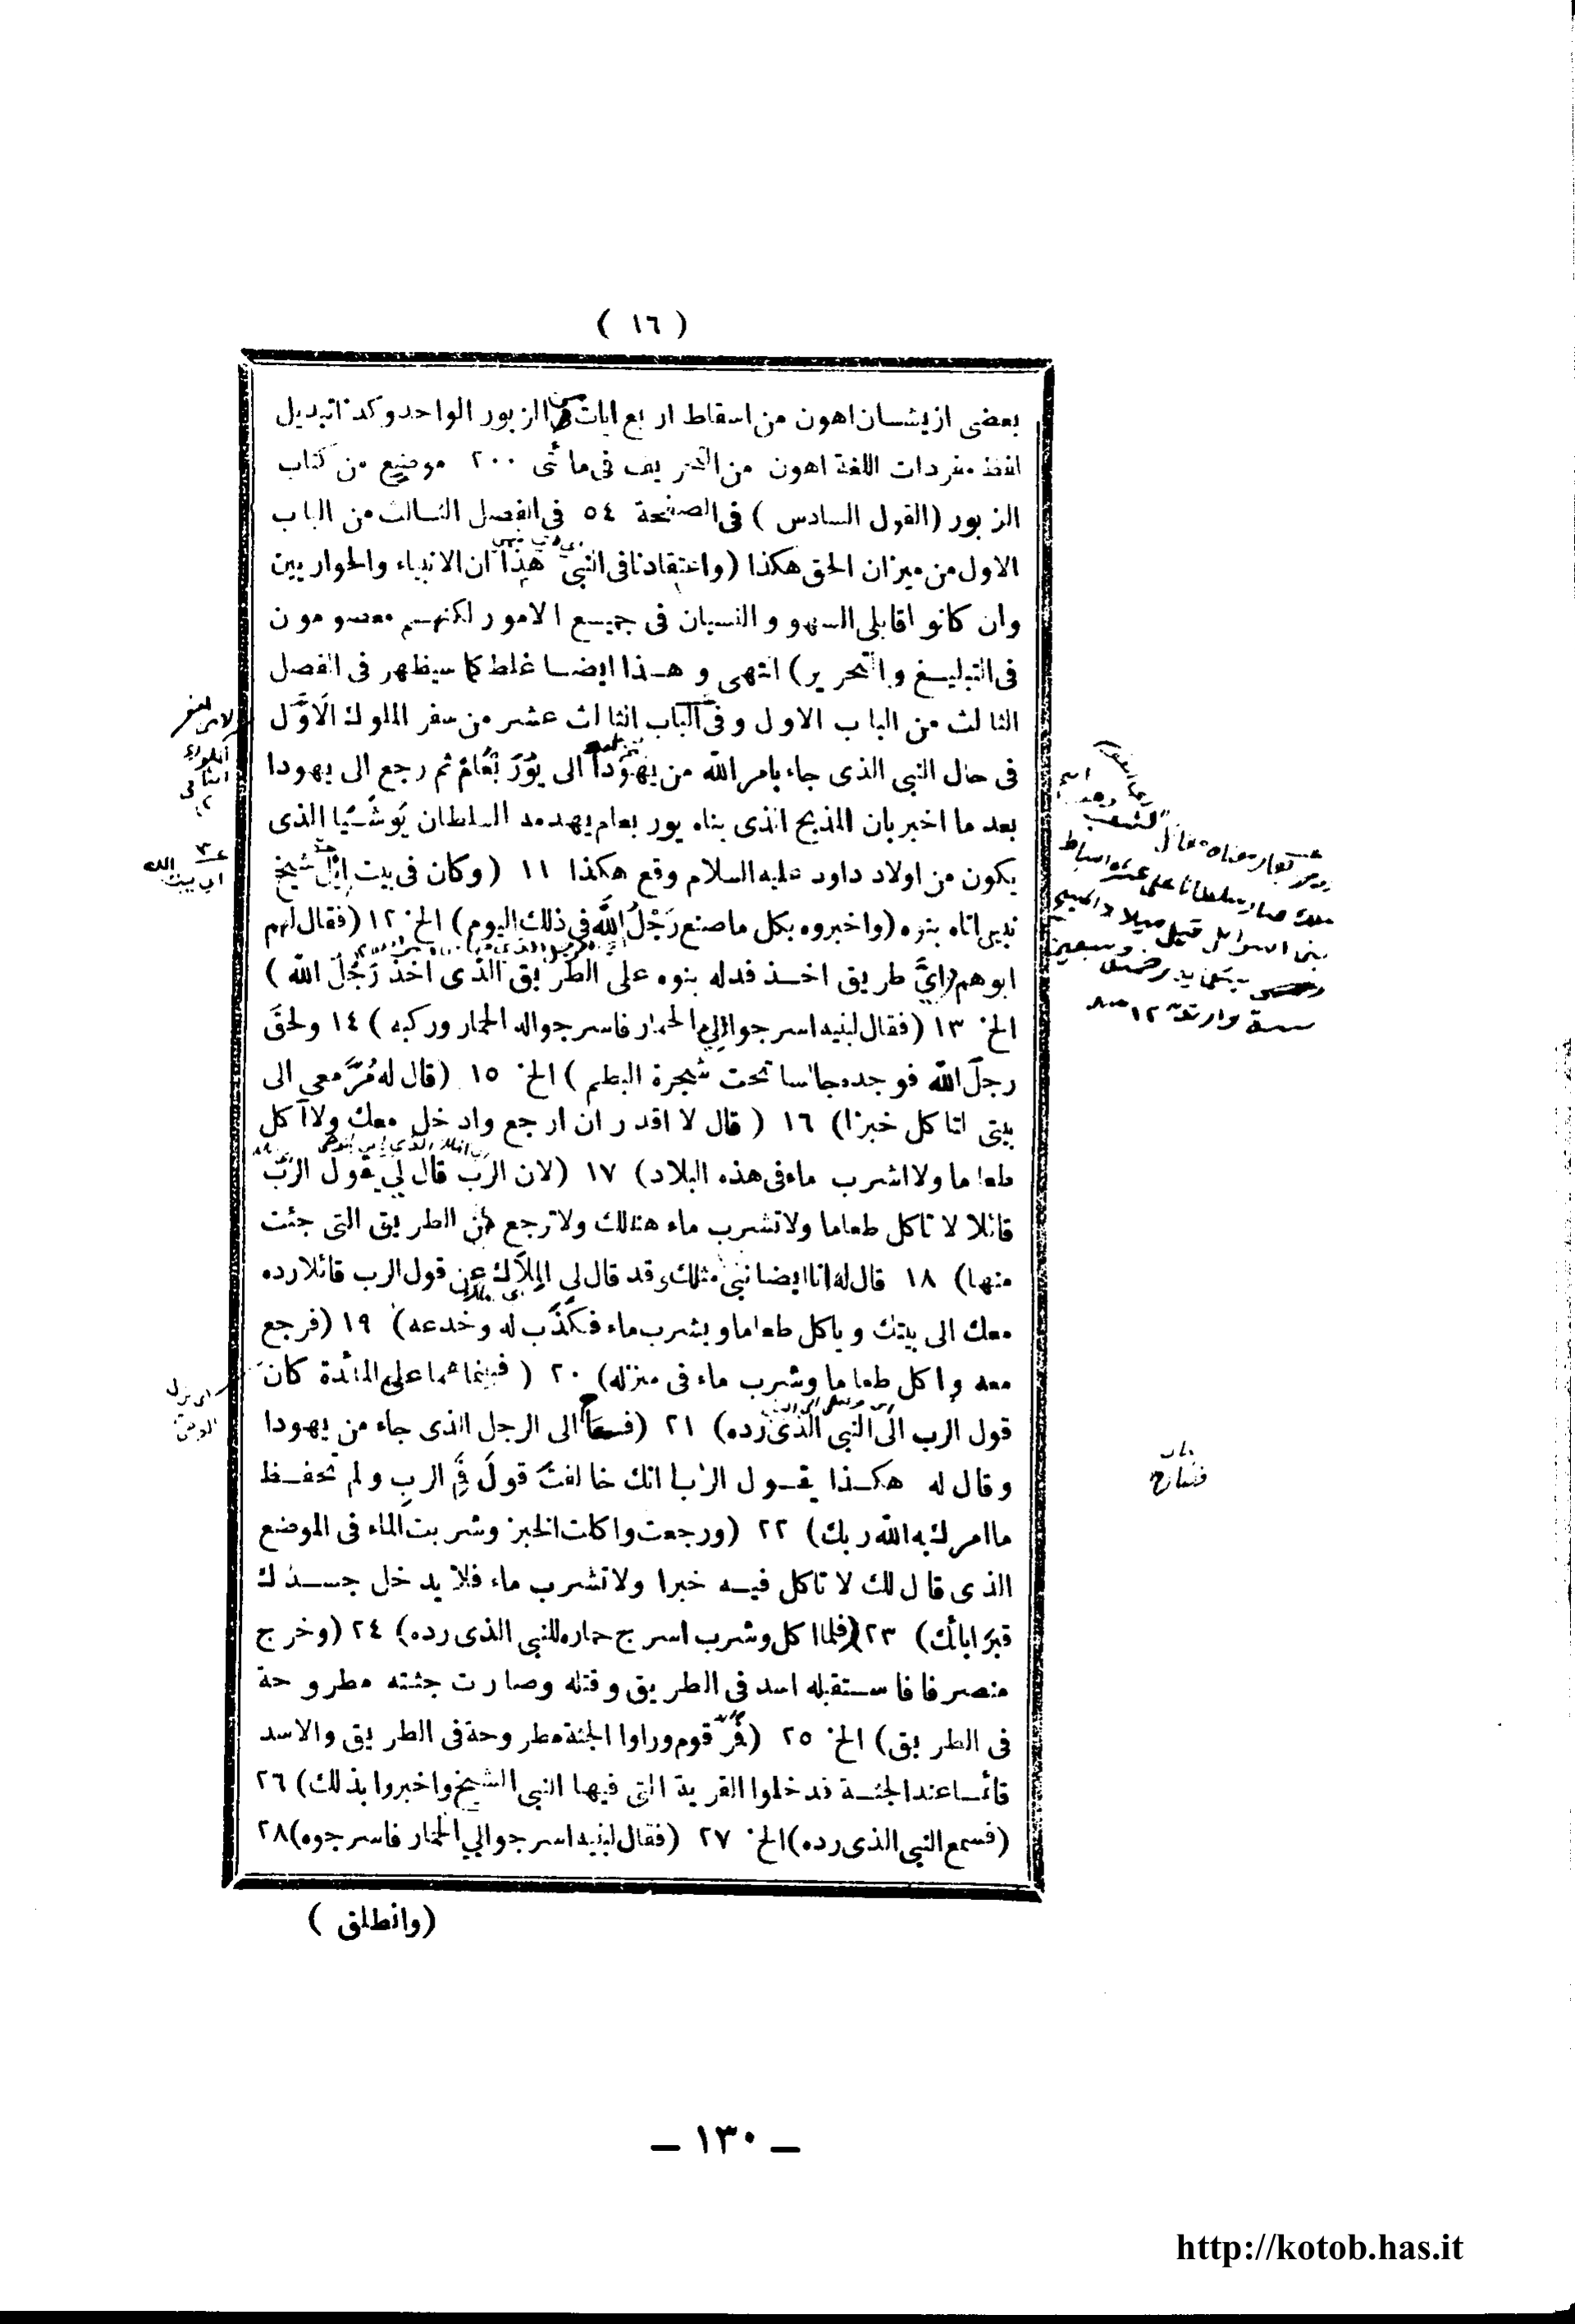 ( ١٦ )
بعضى ازيشان اهون من اسقاط اربع ايات من الزبور الواحد وكذا تبديل
لفظ مفردات اللغة اهون من التحريف فى مأتى ٢٠٠ موضع من كتاب
الزبور (القول السادس ) فى الصفحة ٥٤ فى الفصل الثالث من الباب
الاول من ميزان الحق هكذا (واعتقادنا فى النبى هذا ان الانبياء والحواريين
وان كانوا قابلى السهو والنسيان فى جميع الامور لكنهم معصومون
فى التبليغ والتحرير) انتهى وهذا ايضا غلط كما سيظهر فى الفصل
الثالث من الباب الاول وفى الباب الثالث عشر من سفر الملوك الاوَّل
فى حال النبى الذى جاء بامر الله من يهودا الى يوربعام ثم رجع الى يهودا
بعد ما اخبر بان المذبح الذى بناه يوربعام يهدمه السلطان يوشيا الذى
يكون من اولاد داود عليه السلام وقع هكذا ١١ (وكان فى بيت ايل شيخ
نبى اتاه بنوه (واخبروه بكل ما صنع رَجُلُ الله فى ذلك اليوم) الخ ١٢ (فقال لهم
ابوهم اىَّ طريق اخذ فدله بنوه على الطريق الذى اخذ رَجُلُ الله )
الخ ١٣ (فقال لبنيه اسرجوا لى الحمار فاسرجوا له الحمار وركبه ) ١٤ ولحق
رجلَ الله فوجده جالسا تحت شجرة البطم ) الخ ١٥ (قال له مُرَّ معى الى
بيتى لتاكل خبزا) ١٦ ( قال لا اقدر ان ارجع وادخل معك ولا آكل
طعاما ولا اشرب ماء فى هذه البلاد) ١٧ (لان الرب قال لى بقول الرب
قائلا لا تاكل طعاما ولا تشرب ماء هنالك ولا ترجع من الطريق التى جئت
منها) ١٨ قال له انا ايضا نبى مثلك وقد قال لى الملاك عن قول الرب قائلا رده
معك الى بيتك وياكل طعاما ويشرب ماء فكَذَب له وخدعه) ١٩ (فرجع
معه واكل طعاما وشرب ماء فى منزله) ٢٠ ( فبينما هما على المائدة كان
قول الرب الى النبى الذى رده) ٢١ (فصعا الى الرجل الذى جاء من يهودا
وقال له هكذا يقول الرب انك خالفت قولَ فَمِ الرب ولم تحفظ
ما امرك به الله ربك) ٢٢ (ورجعت واكلت الخبز وشربت الماء فى الموضع
الذى قال لك لا تاكل فيه خبزا ولا تشرب ماء فلا يدخل جسدك
قبرَ ابائك) ٢٣ (فلما اكل وشرب اسرج حماره للنبى الذى رده) ٢٤ (وخرج
منصرفا فاستقبله اسد فى الطريق وقتله وصارت جثته مطروحة
فى الطريق) الخ ٢٥ (فمر قوم وراوا الجثة مطروحة فى الطريق والاسد
قائما عند الجثة فدخلوا القرية التى فيها النبى الشيخ واخبروا بذلك) ٢٦
(فسمع النبى الذى رده) الخ ٢٧ (فقال لبنيه اسرجوا لى الحمار فاسرجوه) ٢٨
(وانطلق )
– ١٣٠ –
http://kotob.has.it